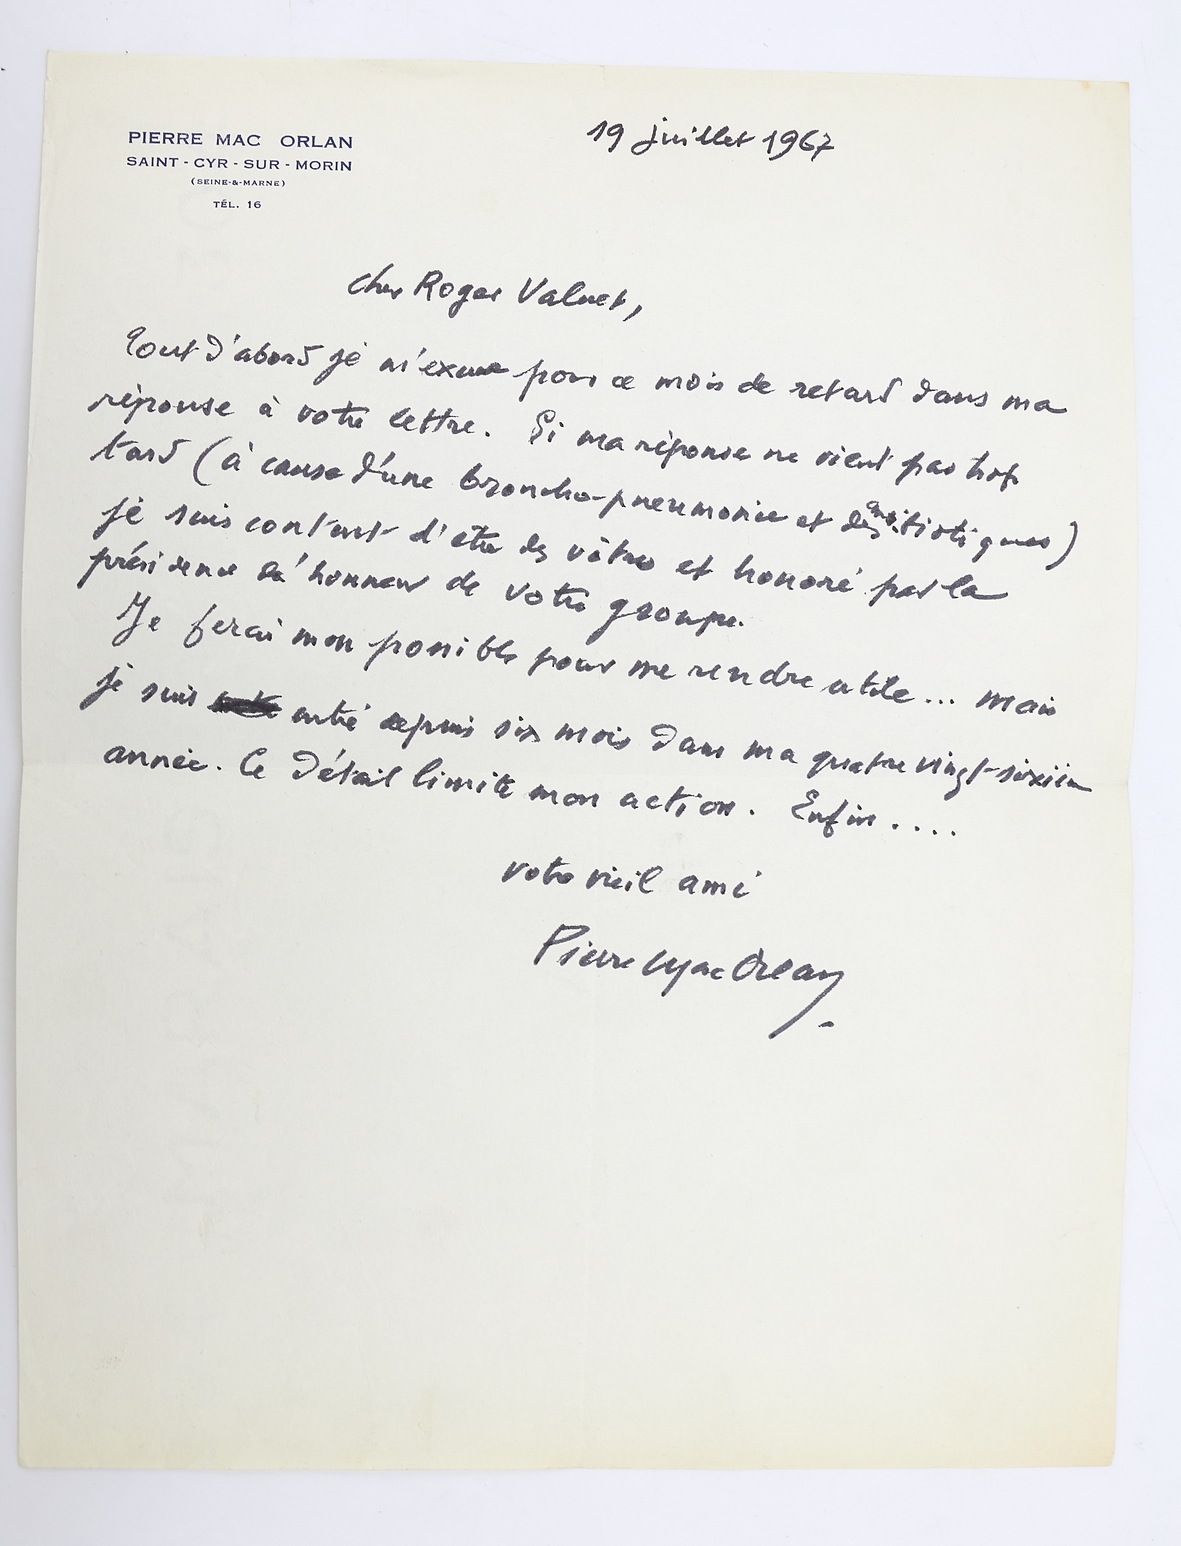 PIERRE MAC ORLAN
SAINT-CYR-SUR-MORIN
(SEINE-&-MARNE)
TÉL. 16
19 juillet 1967
cher Roger Valuet,
Tout d'abord je m'excuse pour ce mois de retard dans ma
réponse à votre lettre. Si ma réponse ne vient pas trop
tard (à cause d'une broncho-pneumonie et des antibiotiques)
je suis content d'être des vôtres et honoré par la
présidence d'honneur de votre groupe.
Je ferai mon possible pour me rendre utile... mais
je suis entré depuis six mois dans ma quatre vingt-sixième
année. Ce détail limite mon action. Enfin....
votre vieil ami
Pierre Mac Orlan